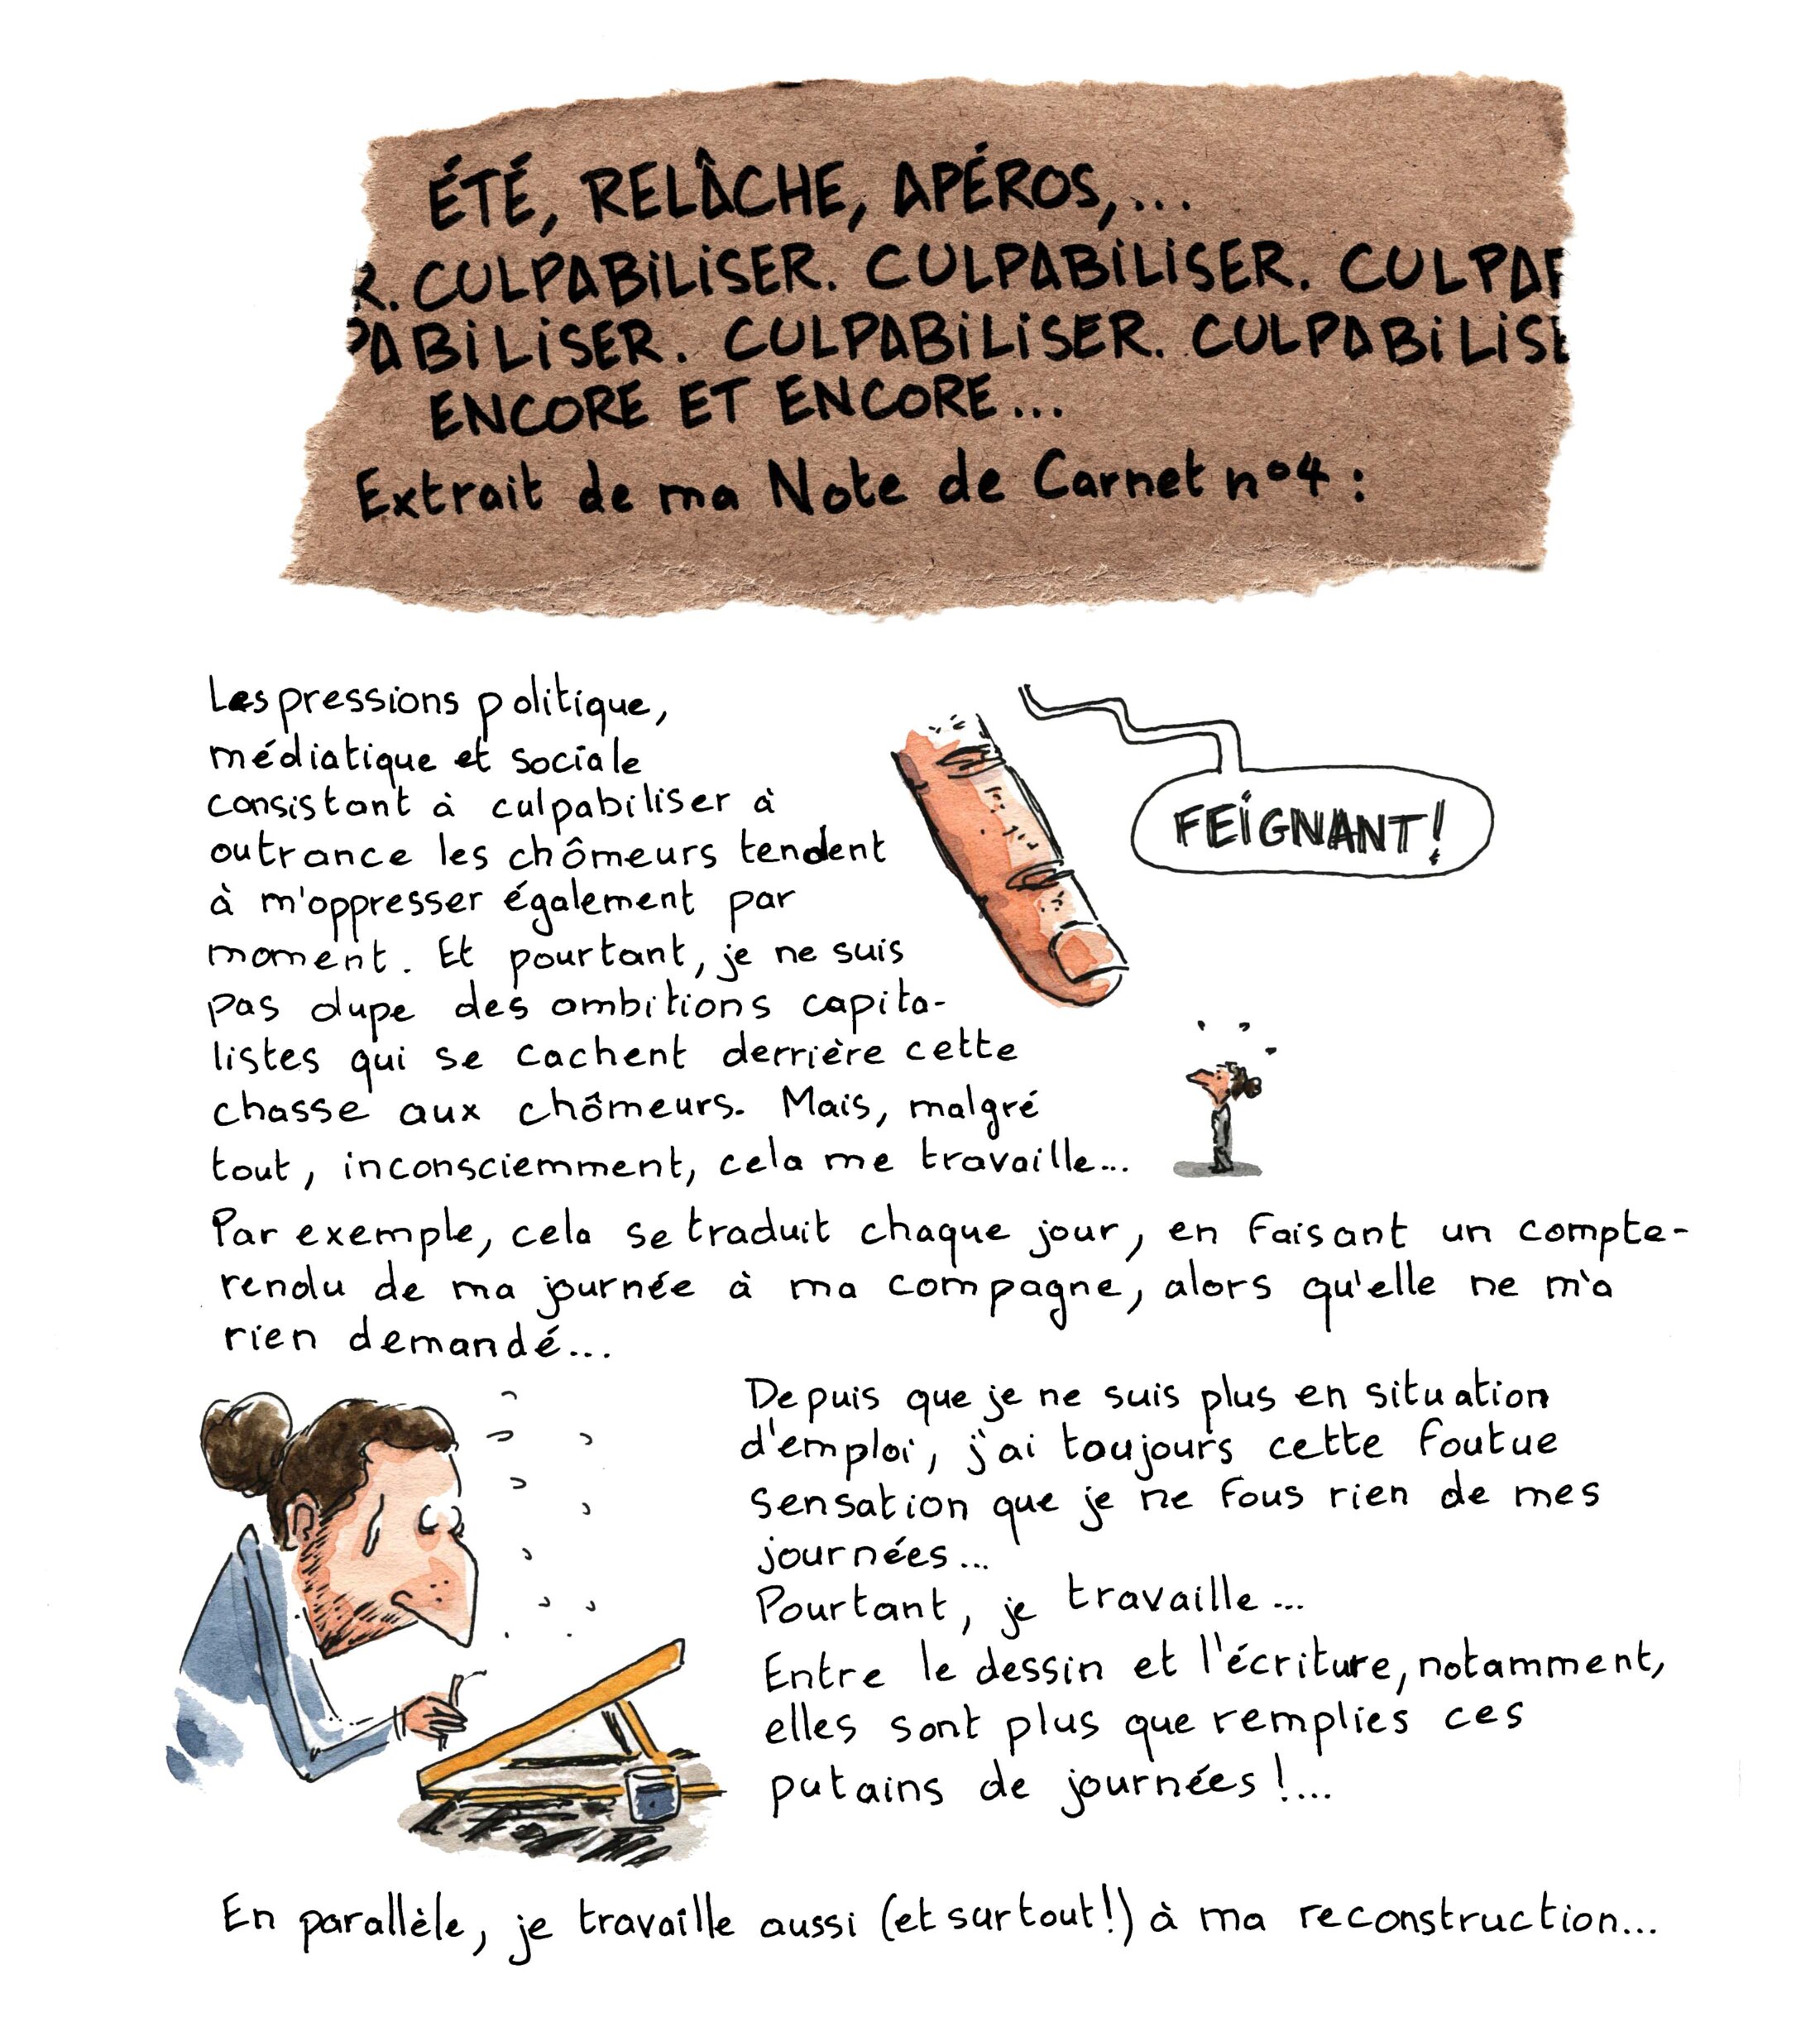 ÉTÉ, RELÂCHE, APÉROS,...
R. CULPABiLiSER. CULPABiLiSER. CULPAB
PABiLiSER. CULPABiLiSER. CULPABiLiSE
ENCORE ET ENCORE...
Extrait de ma Note de Carnet n°4 :
Les pressions politique,
médiatique et sociale
consistant à culpabiliser à
outrance les chômeurs tendent
à m'oppresser également par
moment. Et pourtant, je ne suis
pas dupe des ambitions capita-
listes qui se cachent derrière cette
chasse aux chômeurs. Mais, malgré
tout, inconsciemment, cela me travaille...
FEiGNANT!
Par exemple, cela se traduit chaque jour, en faisant un compte-
rendu de ma journée à ma compagne, alors qu'elle ne m'a
rien demandé...
Depuis que je ne suis plus en situation
d'emploi, j'ai toujours cette foutue
sensation que je ne fous rien de mes
journées...
Pourtant, je travaille...
Entre le dessin et l'écriture, notamment,
elles sont plus que remplies ces
putains de journées !...
En parallèle, je travaille aussi (et surtout!) à ma reconstruction...